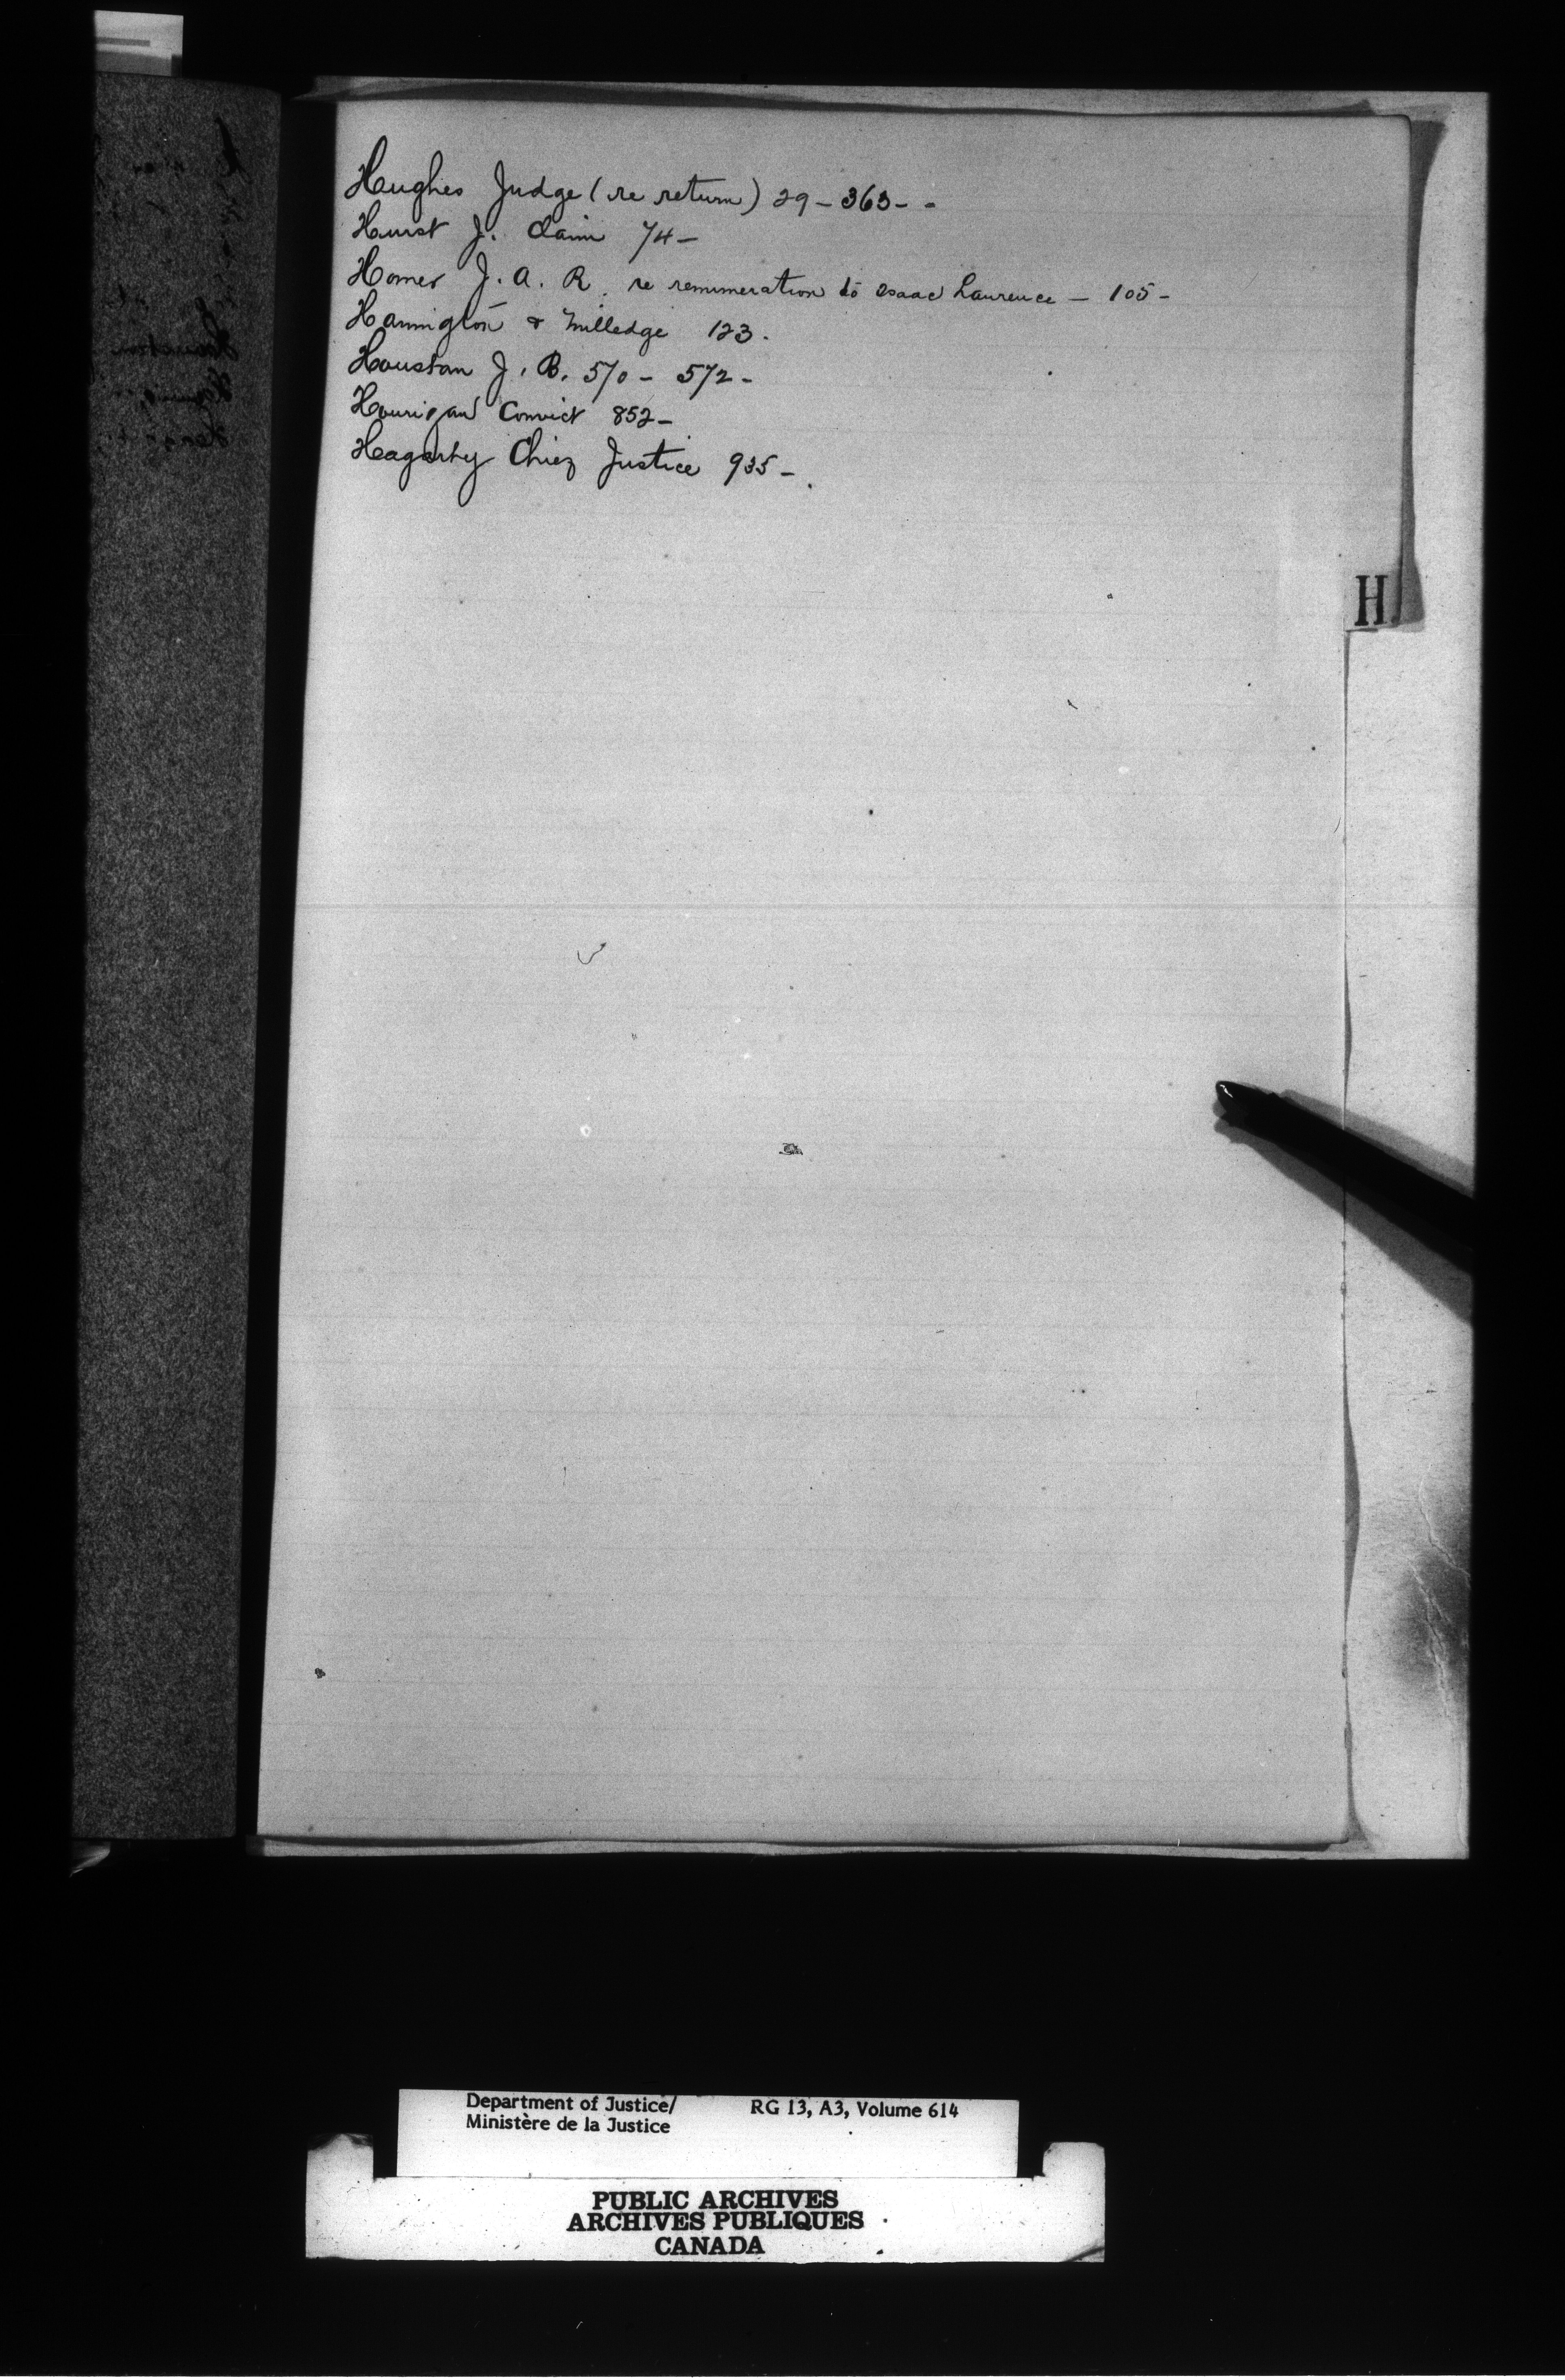 Hughes Judge (re return) 29 - 363 - -
Hurst J. Claim 74 -
Homer J. A. R. re remuneration to Isaac Laurence - 105 -
Hannington & Milledge 123.
Houston J. B. 570 - 572 -
Hourigan Convict 852 -
Hagarty Chief Justice 935 -
H
Department of Justice/ RG 13, A3, Volume 614
Ministère de la Justice
PUBLIC ARCHIVES
ARCHIVES PUBLIQUES
CANADA